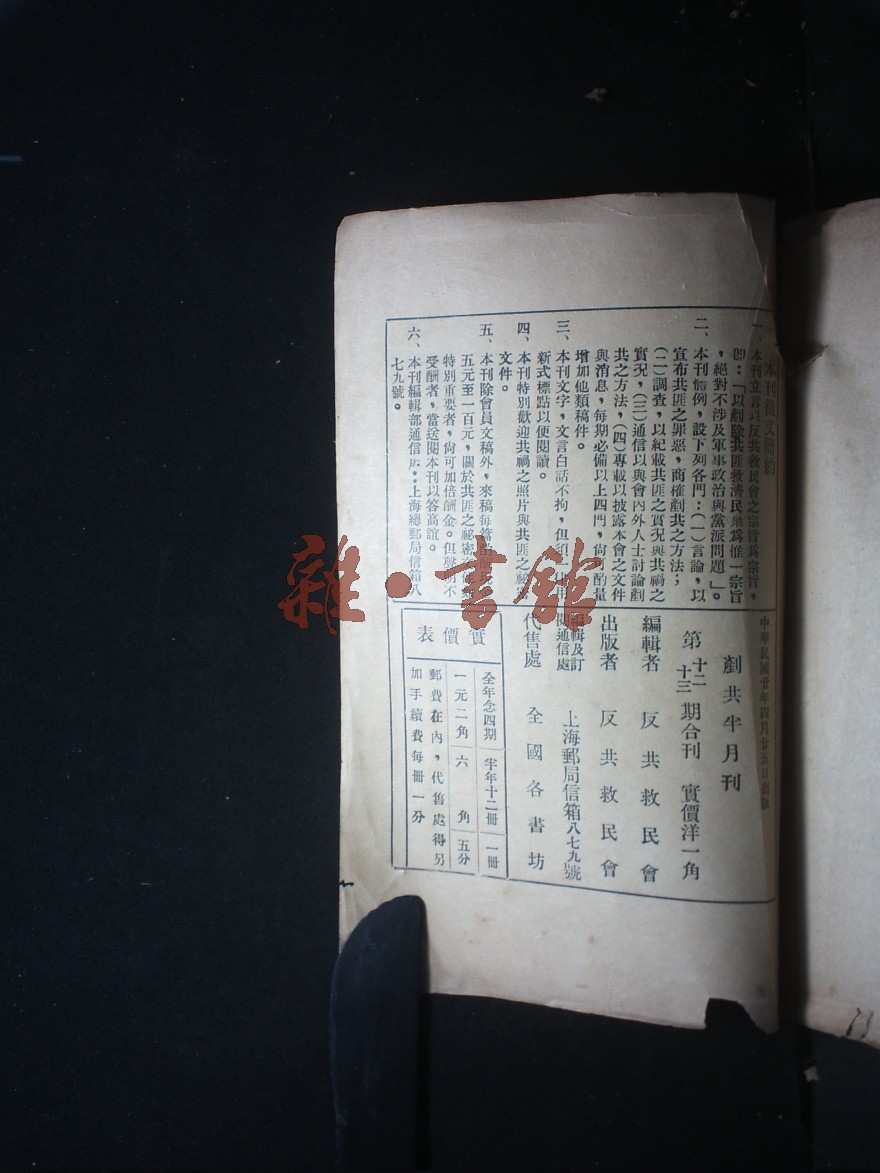 本刊徵文簡約
一、本刊立言以反共救民會之宗旨爲宗旨，
卽：「以剷除共匪救濟民衆爲惟一宗旨
，絕對不涉及軍事政治與黨派問題」。
二、本刊體例，設下列各門：（一）言論，以
宣布共匪之罪惡，商榷剷共之方法；
（二）調查，以紀載共匪之實況與共禍之
實況，（三）通信以與會內外人士討論剷
共之方法，（四）專載以披露本會之文件
與消息，每期必備以上四門，尙可酌量
增加他類稿件。
三、本刊文字，文言白話不拘，但須
新式標點以便閱讀。
四、本刊特別歡迎共禍之照片與共匪之祕密
文件。
五、本刊除會員文稿外，來稿每篇
五元至一百元，關於共匪之祕密
特別重要者，尙可加倍酬金。但聲明不
受酬者，當送閱本刊以答高誼。
六、本刊編輯部通信處：上海總郵局信箱八
七九號。
中華民國廿年四月廿五日出版
剷共半月刊
第十二十三期合刊 實價洋一角
編輯者 反共救民會
出版者 反共救民會
編輯及訂閱通信處 上海郵局信箱八七九號
代售處 全國各書坊
實價表
全年念四期 半年十二冊 一冊
一元二角 六角 五分
郵費在內，代售處得另
加手續費每冊一分
雜·書館